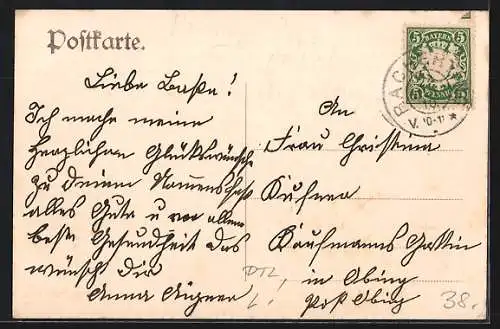 Postkarte.
BAYERN
5 5
5 5
BAC
V. 10-11
Liebe Base!
Ich mache meine
herzlichen Glückwünsche
zu Deinem Namensfest
alles Gute u vor allem
beste Gesundheit das
wünscht Dir
Anna Aigner
An
Frau Christina
Kufner
Kaufmanns Gattin
in Obing
Post Obing
DTL,
38.